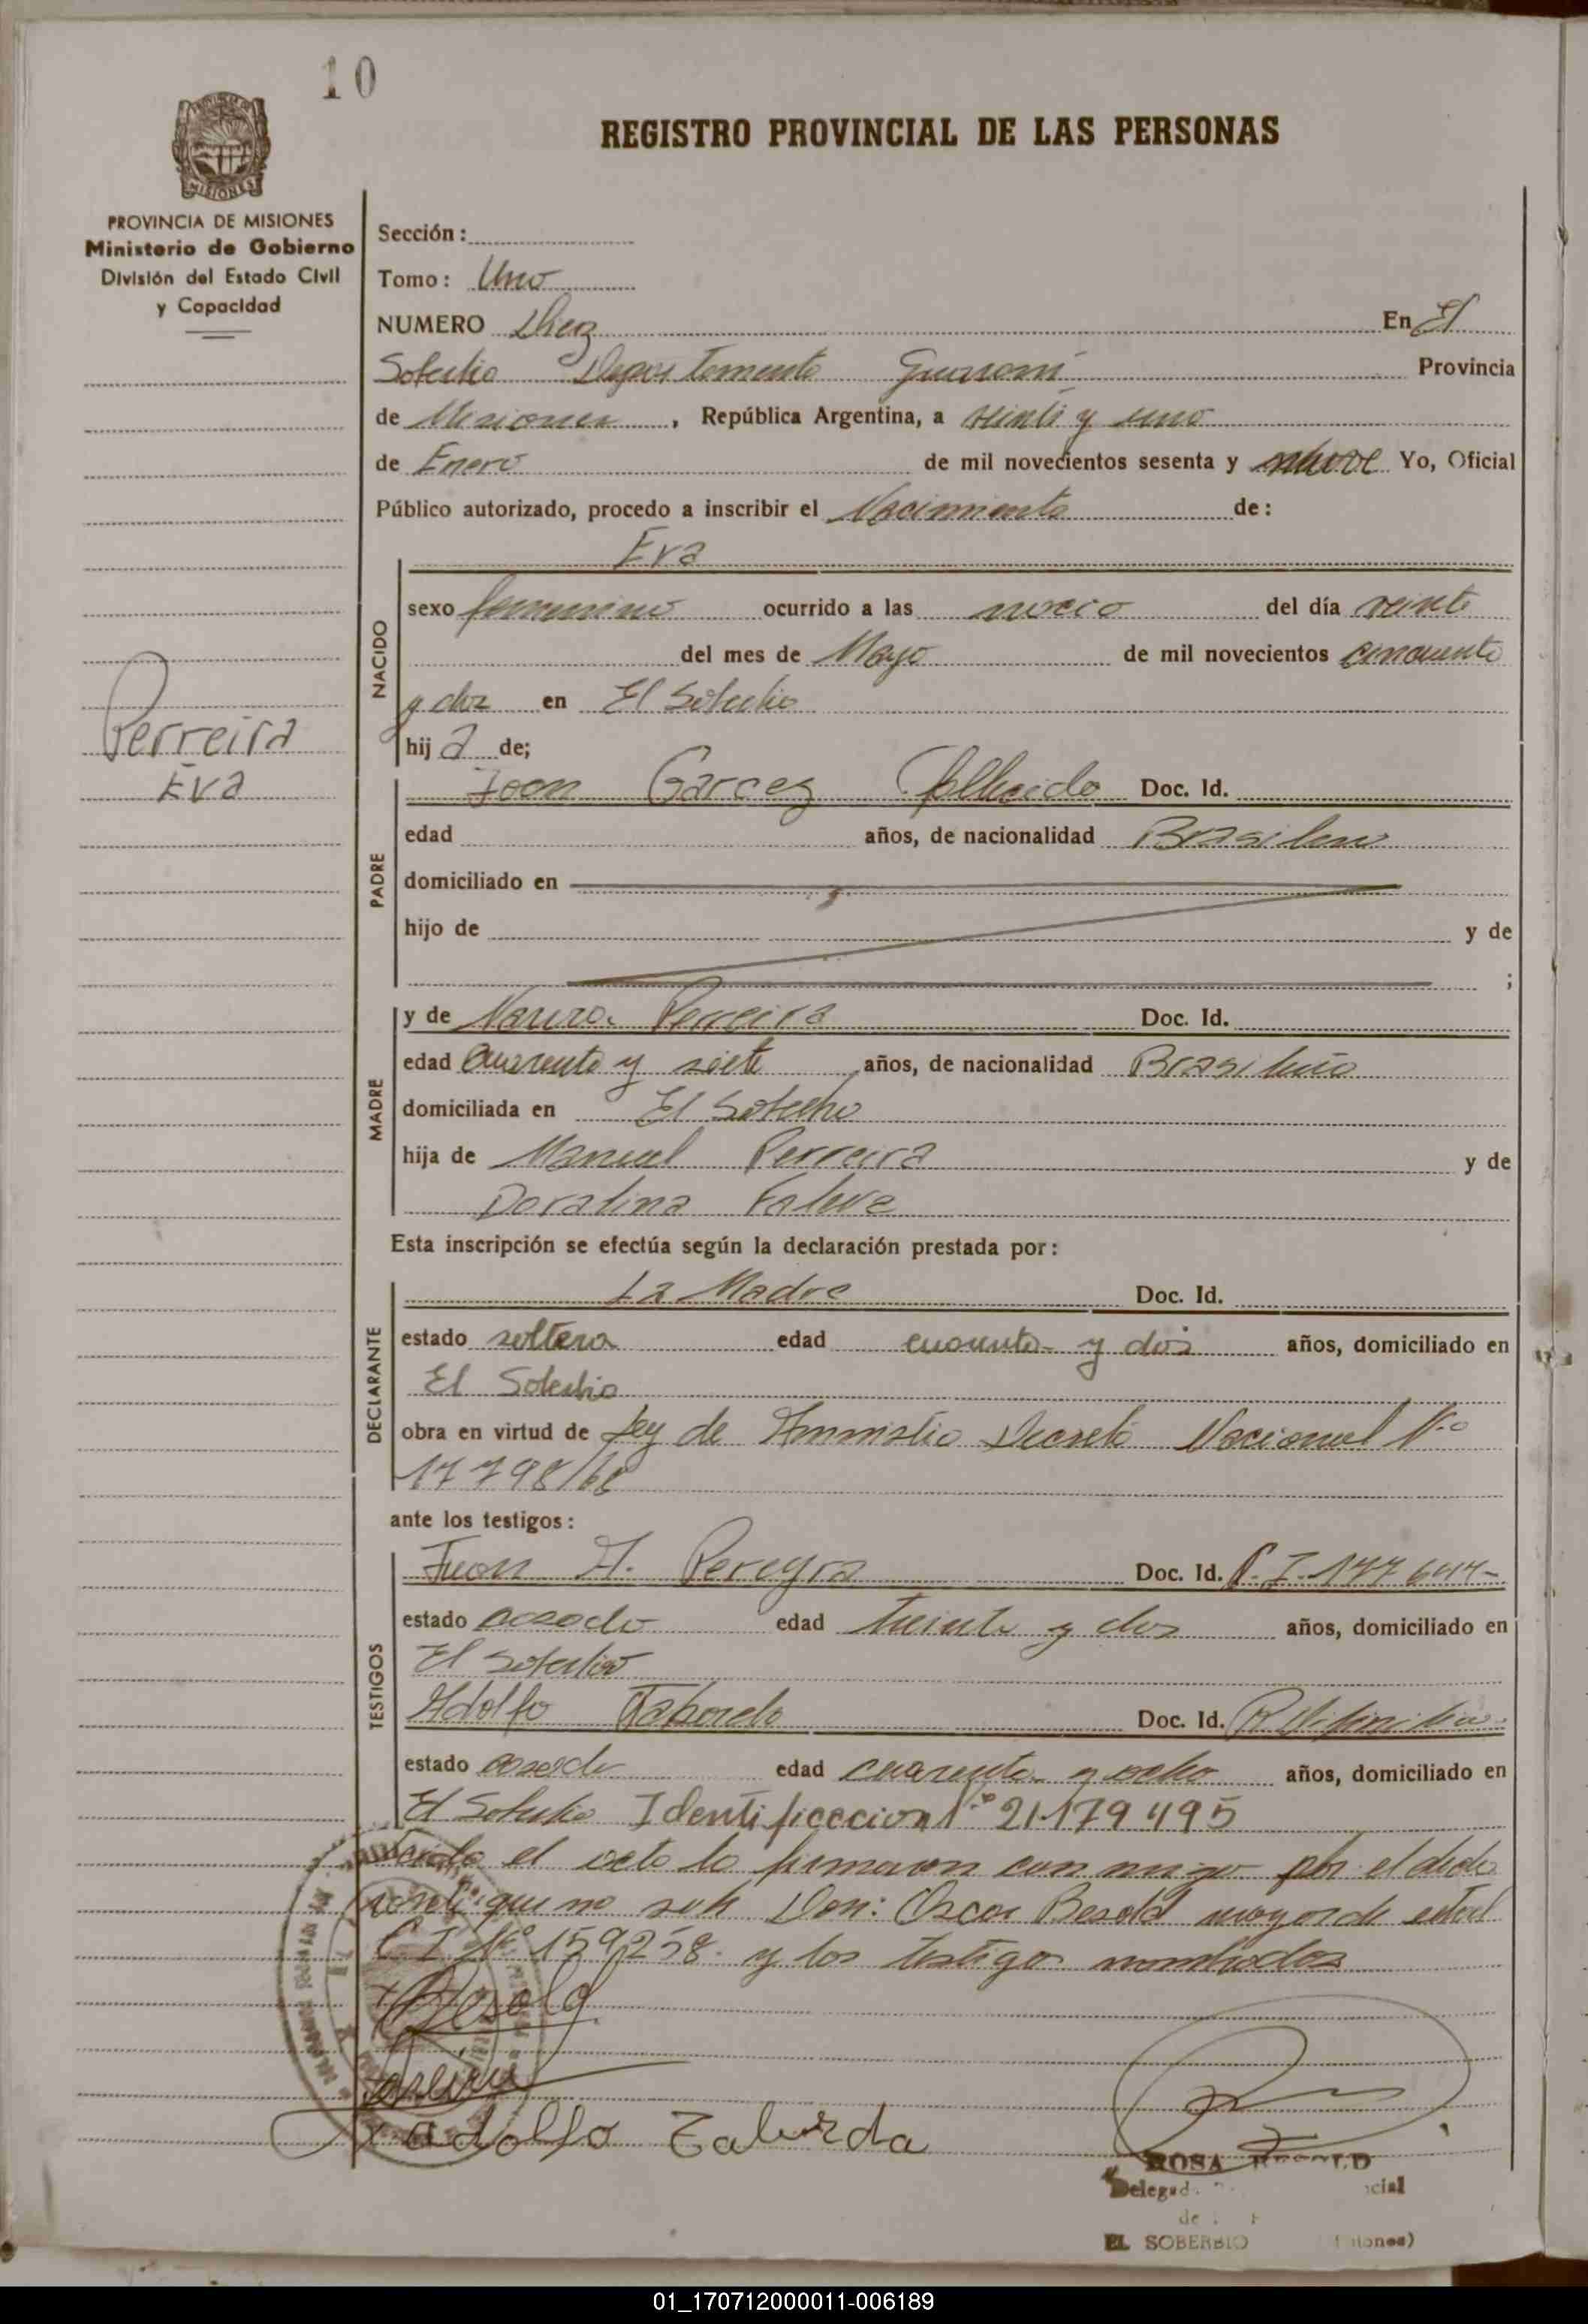 10
REGISTRO PROVINCIAL DE LAS PERSONAS
MISIONES
PROVINCIA DE MISIONES
Ministerio de Gobierno
División del Estado Civil
y Capacidad
Sección:
Tomo: Uno
NUMERO Diez En El
Soberbio Departamento Guaraní Provincia
de Misiones, República Argentina, a veinti y uno
de Enero de mil novecientos sesenta y nueve Yo, Oficial
Público autorizado, procedo a inscribir el Nacimiento de:
Eva
NACIDO
sexo femenino ocurrido a las del día veinte
del mes de Mayo de mil novecientos cincuenta
y dos en El Soberbio
hija de;
Perreira
Eva
PADRE
Joon Garcez Doc. Id.
edad años, de nacionalidad Brasilero
domiciliado en
hijo de y de
;
MADRE
y de Perreira Doc. Id.
edad cuarenta y siete años, de nacionalidad Brasileña
domiciliada en El Soberbio
hija de Manuel Perreira y de
Doralina
Esta inscripción se efectúa según la declaración prestada por:
DECLARANTE
La Madre Doc. Id.
estado soltera edad cuarenta y dos años, domiciliado en
El Soberbio
obra en virtud de Ley de Amnistia Decreto Nacional Nº
17798/68
ante los testigos:
TESTIGOS
Juan A. Pereyra Doc. Id. C.I. 177644-
estado casado edad treinta y dos años, domiciliado en
El Soberbio
Adolfo Taborda Doc. Id.
estado casado edad cuarenta y ocho años, domiciliado en
El Soberbio Identificacion Nº 21179495
el acto lo firmaron con migo por el
que no sabe Don: Oscar Besold mayor de edad
C I Nº 159258. y los testigos nombrados
Besold
adolfo Taborda
ROSA BESOLD
EL SOBERBIO
01_170712000011-006189